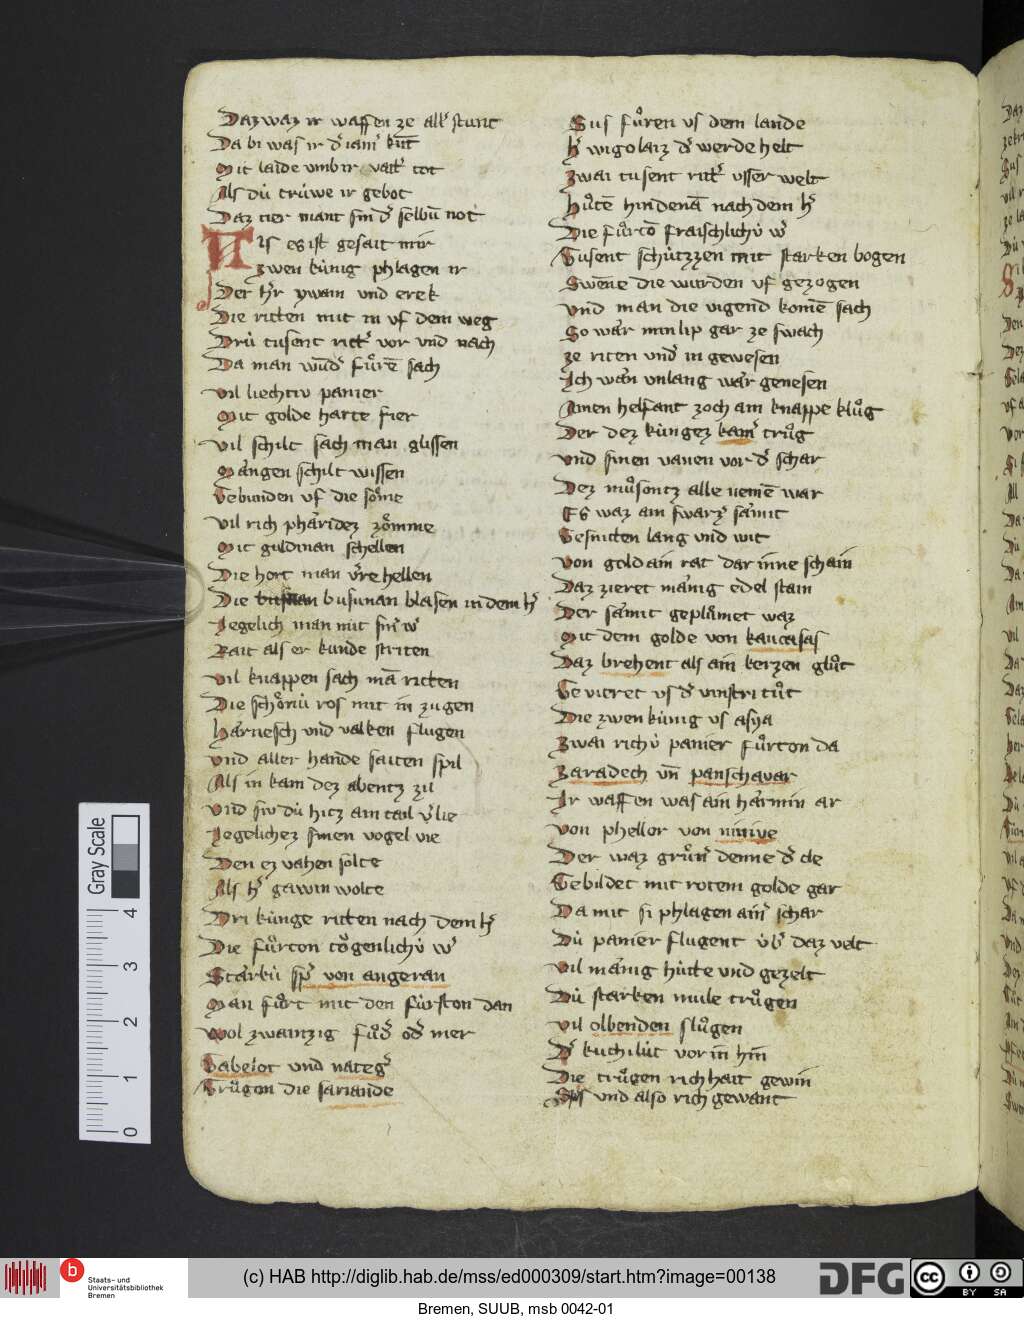 Daz waz ir waffen ze all' stunt
Da bi was ir d' iam' kunt
Mit laide vmb ir vatt' tot
Als du̍ tru̍we ir gebot
Daz tier mant sin d' selbū not
Nis es ist gesait mir
zwen ku̍nig phlagen ir
Der h'r ywain vnd erek
Die ritten mit in vf dem weg
Dru̍ tusent ritt' vor vnd nach
Da man wūd' fuͦrē sach
vil liechtiv panier
Mit golde harte fier
vil schilt sach man glissen
Maͤngen schilt wissen
Gebunden vf die soͤme
vil rich phaͤridez zoͤmme
Mit guldinan schellen
Die hort man v're hellen
Die busunan blasen in dem h'
Iegelich man mit sin' w'
Rait als er kunde striten
vil knappen sach mā ritten
Die schoͤnu̍ ros mit in zugen
haͤrnesch vnd valken flugen
vnd aller hande saiten spil
Als in kam dez abentz zil
vnd siv du̍ hitz ain tail v'lie
Iegelichez sinen vogel vie
Den ez vahen solte
Als h' gawin wolte
Dri ku̍nge ritten nach dem h'
Die fuͦrton toͤgenlichu̍ w'
Starku̍ sp' von angeran
Man fuͦrt mit den fu̍rston dan
wol zwaintzig fuͦd' od' mer
Gabelot vnd nateg'
Truͦgon die sariande
Sus fuͦren vs dem lande
h' wigolaiz d' werde helt
Zwai tusent ritt' vsser welt
huͦtē hindenā nach dem h'
Die fuͦrtō fraischlichu̍ w'
Tusent schu̍tzzen mit starken bogen
Swene die wurden vf gezogen
vnd man die vigend komē sach
So waͤr min lip gar ze swach
ze riten vnd' in gewesen
Ich waͤn vnlang waͤr genesen
Ainen helfant zoch ain knappe kluͦg
Der dez ku̍ngez kam' truͦg
vnd sinen vanen vor d' schar
Dez muͦsontz alle nemē war
Es waz ain swarz' saͤmit
Gesnitten lang vnd wit
von gold ain rat dar inne schain
Daz zieret maͤnig edel stain
Der saͤmit geplaͤmet waz
Mit dem golde von kaucasas
Daz brehent als ain kerzen gluͦt
Geviert vs d' vinstri tuͦt
Die zwen ku̍nig vs asya
Zwai richu̍ panier fuͦrton da
Zaradech vn̄ panschavar
Ir waffen was ain haͤrmin ar
von phellor von ninive
Der waz gruͦn' denne d' cle
Gebildet mit rotem golde gar
Da mit si phlagen ain' schar
Du̍ panier flugent u̍b' daz velt
vil maͤnig hu̍tte vnd gezelt
Du̍ starken mule truͦgen
vil olbenden sluͦgen
D' kuchilu̍t vor in hin
Die truͦgen richhait gewin
Sus vnd also rich gewant
Gray Scale
4
3
2
1
0
b
Staats- und
Universitätsbibliothek
Bremen
(c) HAB http://diglib.hab.de/mss/ed000309/start.htm?image=00138
DFG
cc
BY SA
Bremen, SUUB, msb 0042-01